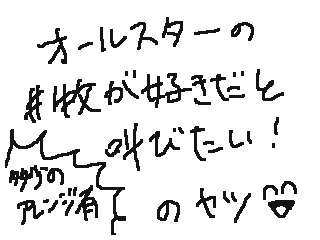 オールスターの
#牧が好きだと
叫びたい!
の
アレンジ有
のヤツ